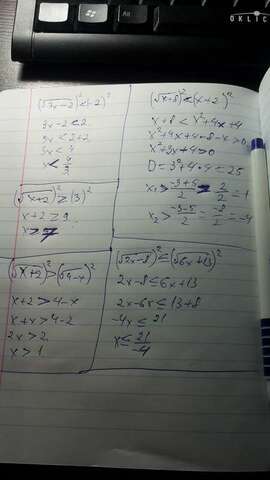 (√3x-2)² < (2)²
3x-2 < 2
3x < 2+2
3x < 4
x < 4/3
(√x+8)² < (x+2)²
x+8 < x²+4x+4
x²+4x+4-8-x > 0
x²+3x+4 > 0
D = 3²+4·4 = 25
x₁ > -3+5/2 = 2/2 = 1
x₂ > -3-5/2 = -8/2 = -4
(√x+2)² ≥ (3)²
x+2 ≥ 9
x ≥ 7
(√x+2)² > (√4-x)²
x+2 > 4-x
x+x > 4-2
2x > 2
x > 1
(√2x-8)² ≤ (√6x+13)²
2x-8 ≤ 6x+13
2x-6x ≤ 13+8
-4x ≤ 21
x ≤ 21/-4